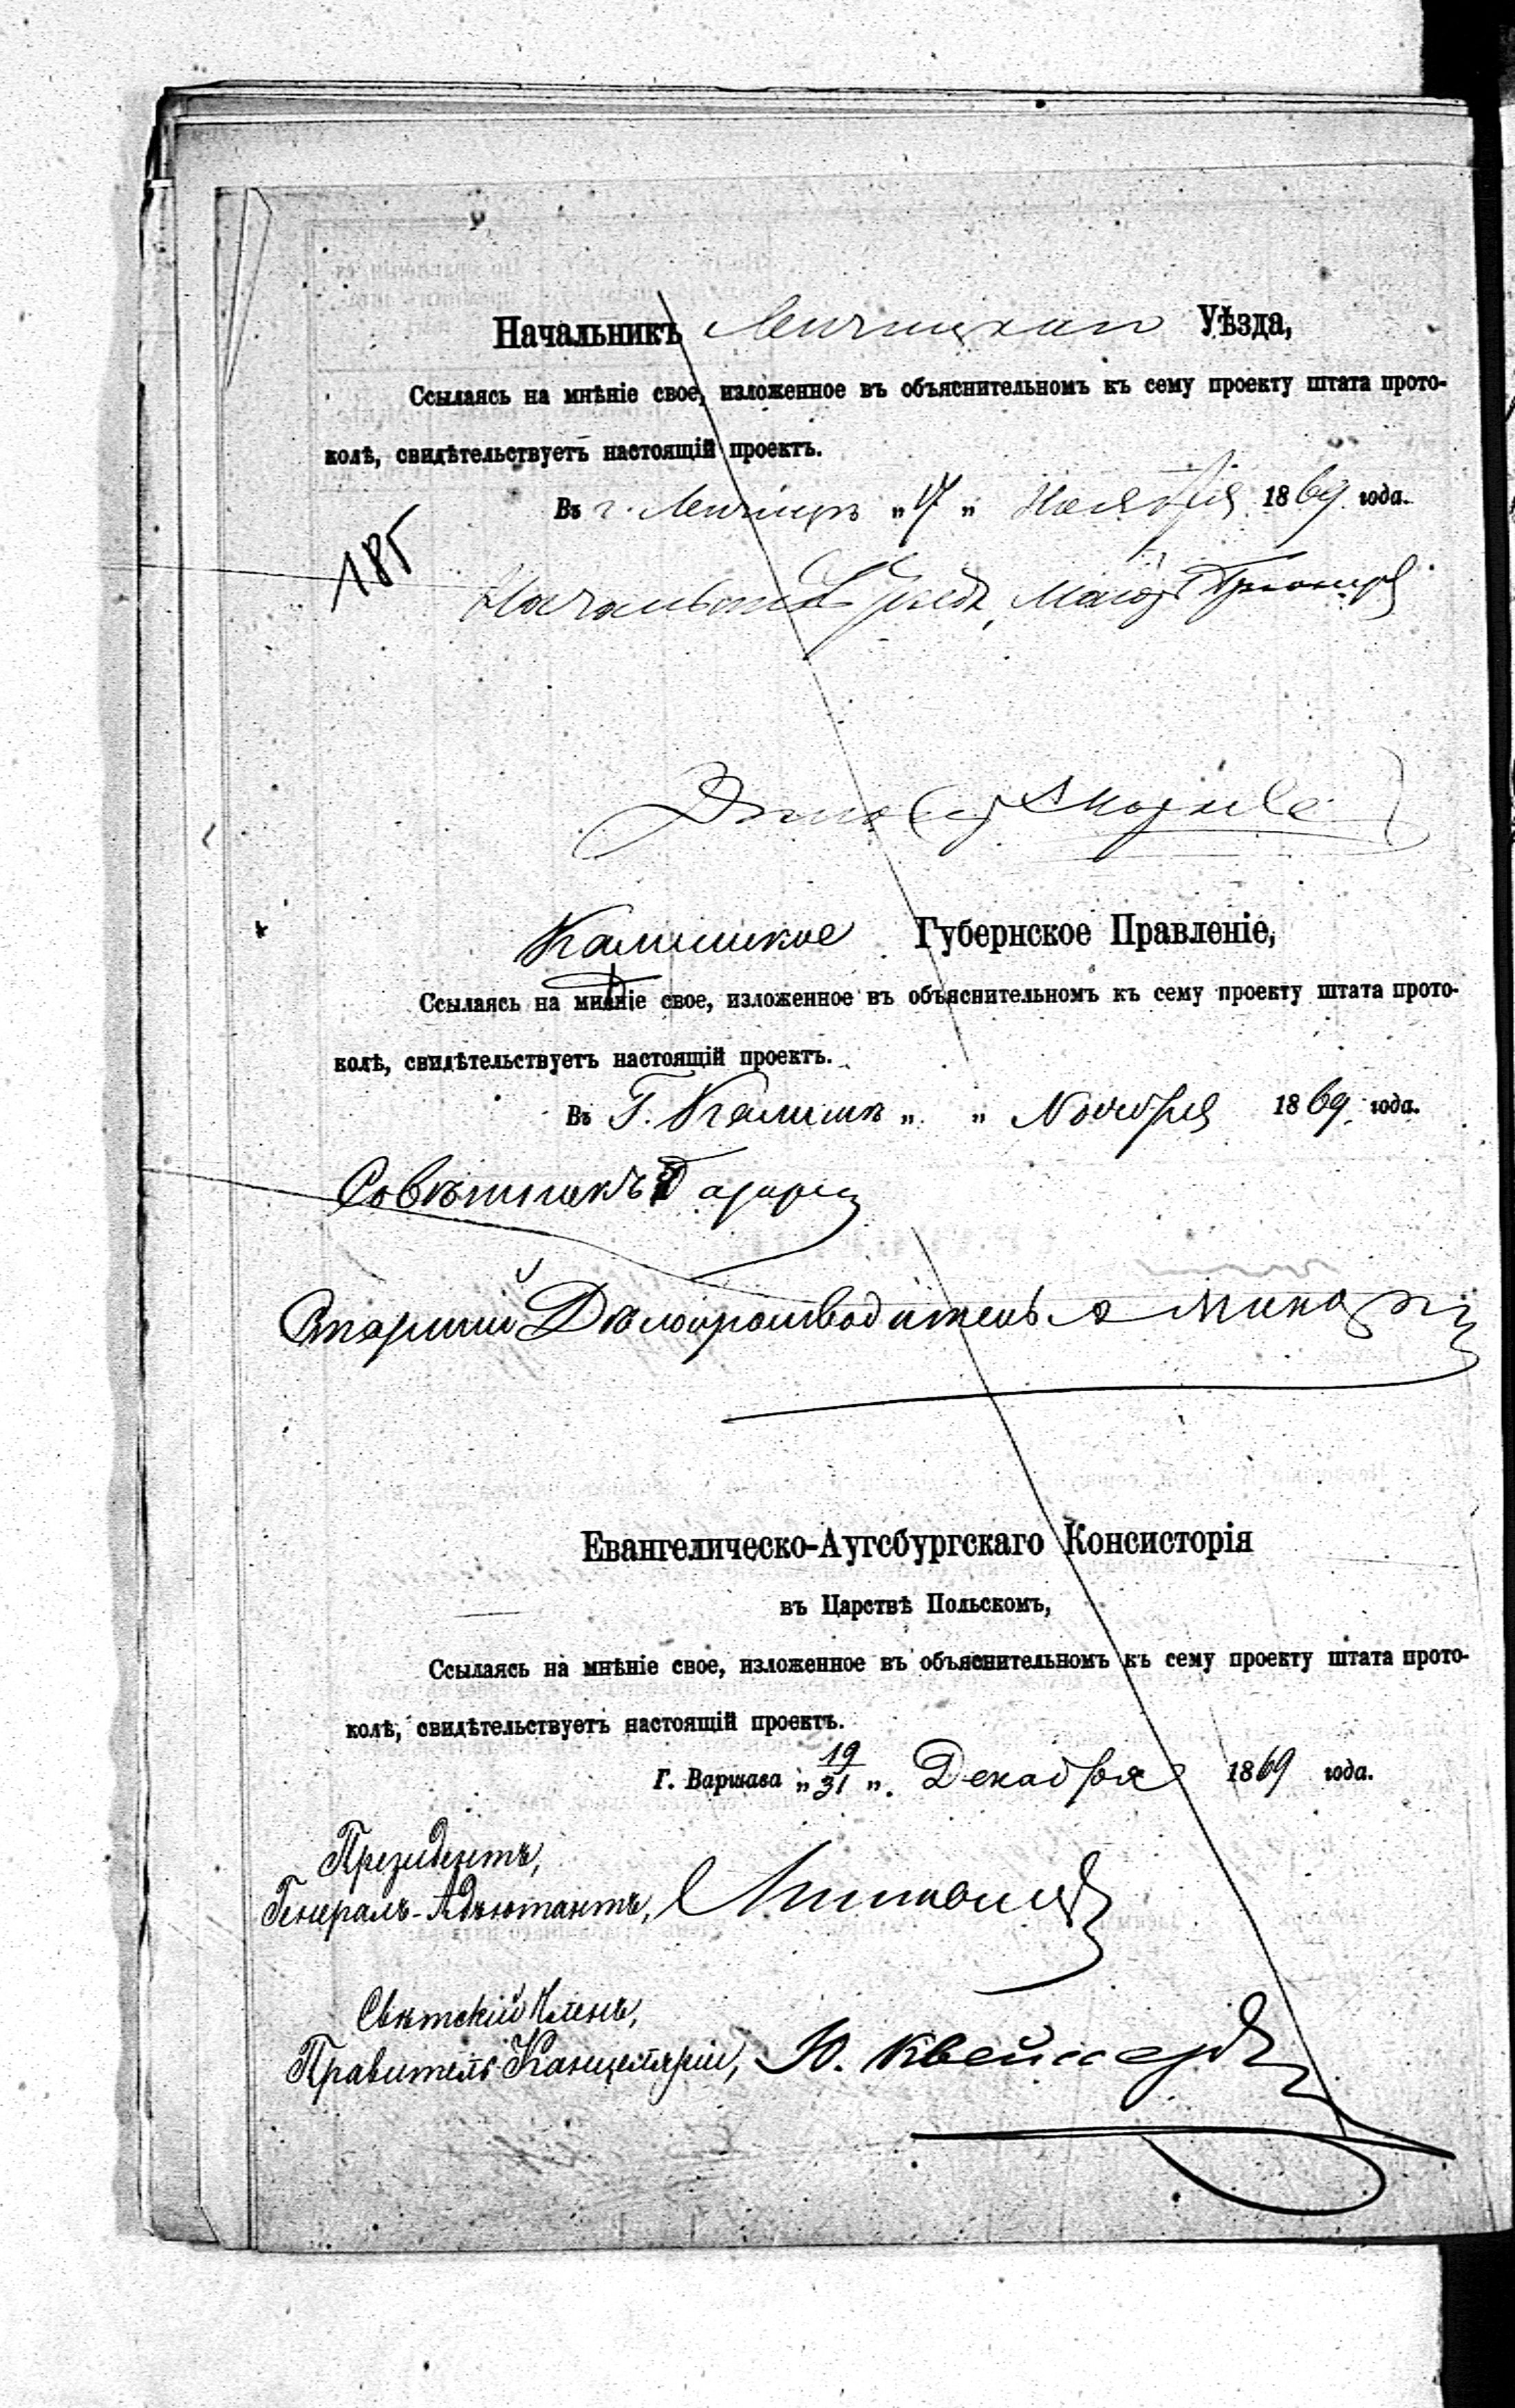 Начальникъ Ленчицкаго Уѣзда,
Ссылаясь на мнѣніе свое, изложенное въ объяснительномъ къ сему проекту штата прото-
колѣ, свидѣтельствуетъ настоящій проектъ.
Въ г. Ленчицѣ „17„ Ноября 1869 года.
185
Начальникъ Уѣзда, Маіоръ
Калишское Губернское Правленіе,
Ссылаясь на мнѣніе свое, изложенное въ объяснительномъ къ сему проекту штата прото-
колѣ, свидѣтельствуетъ настоящій проектъ.
Въ Г. Калишѣ „ „ Ноября 1869 года.
Совѣтникъ
Старшій Дѣлопроизводитель
Евангелическо-Аугсбургскаго Консисторія
въ Царствѣ Польскомъ,
Ссылаясь на мнѣніе свое, изложенное въ объяснительномъ къ сему проекту штата прото-
колѣ, свидѣтельствуетъ настоящій проектъ.
Г. Варшава „19/31„ Декабря 1869 года.
Президентъ,
Генералъ-Адъютантъ,
Свѣтскій Членъ,
Правитель Канцеляріи, Ю.